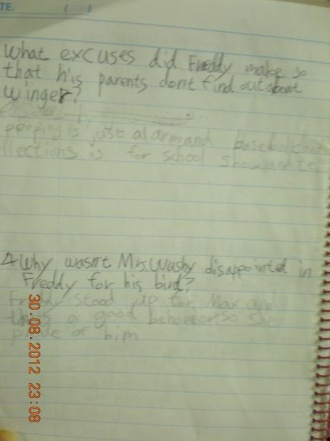 TE.
What excuses did Freddy make so
that his parents dont find out about
Winger?
peeping is just alarm and baseball
llections is for school show
4 Why wasn't Mrs. Wushy disappointed in
Freddy for his bird?
Freddy stood up for Max and
a good behavior so
pride of him
30.08.2012 23:08